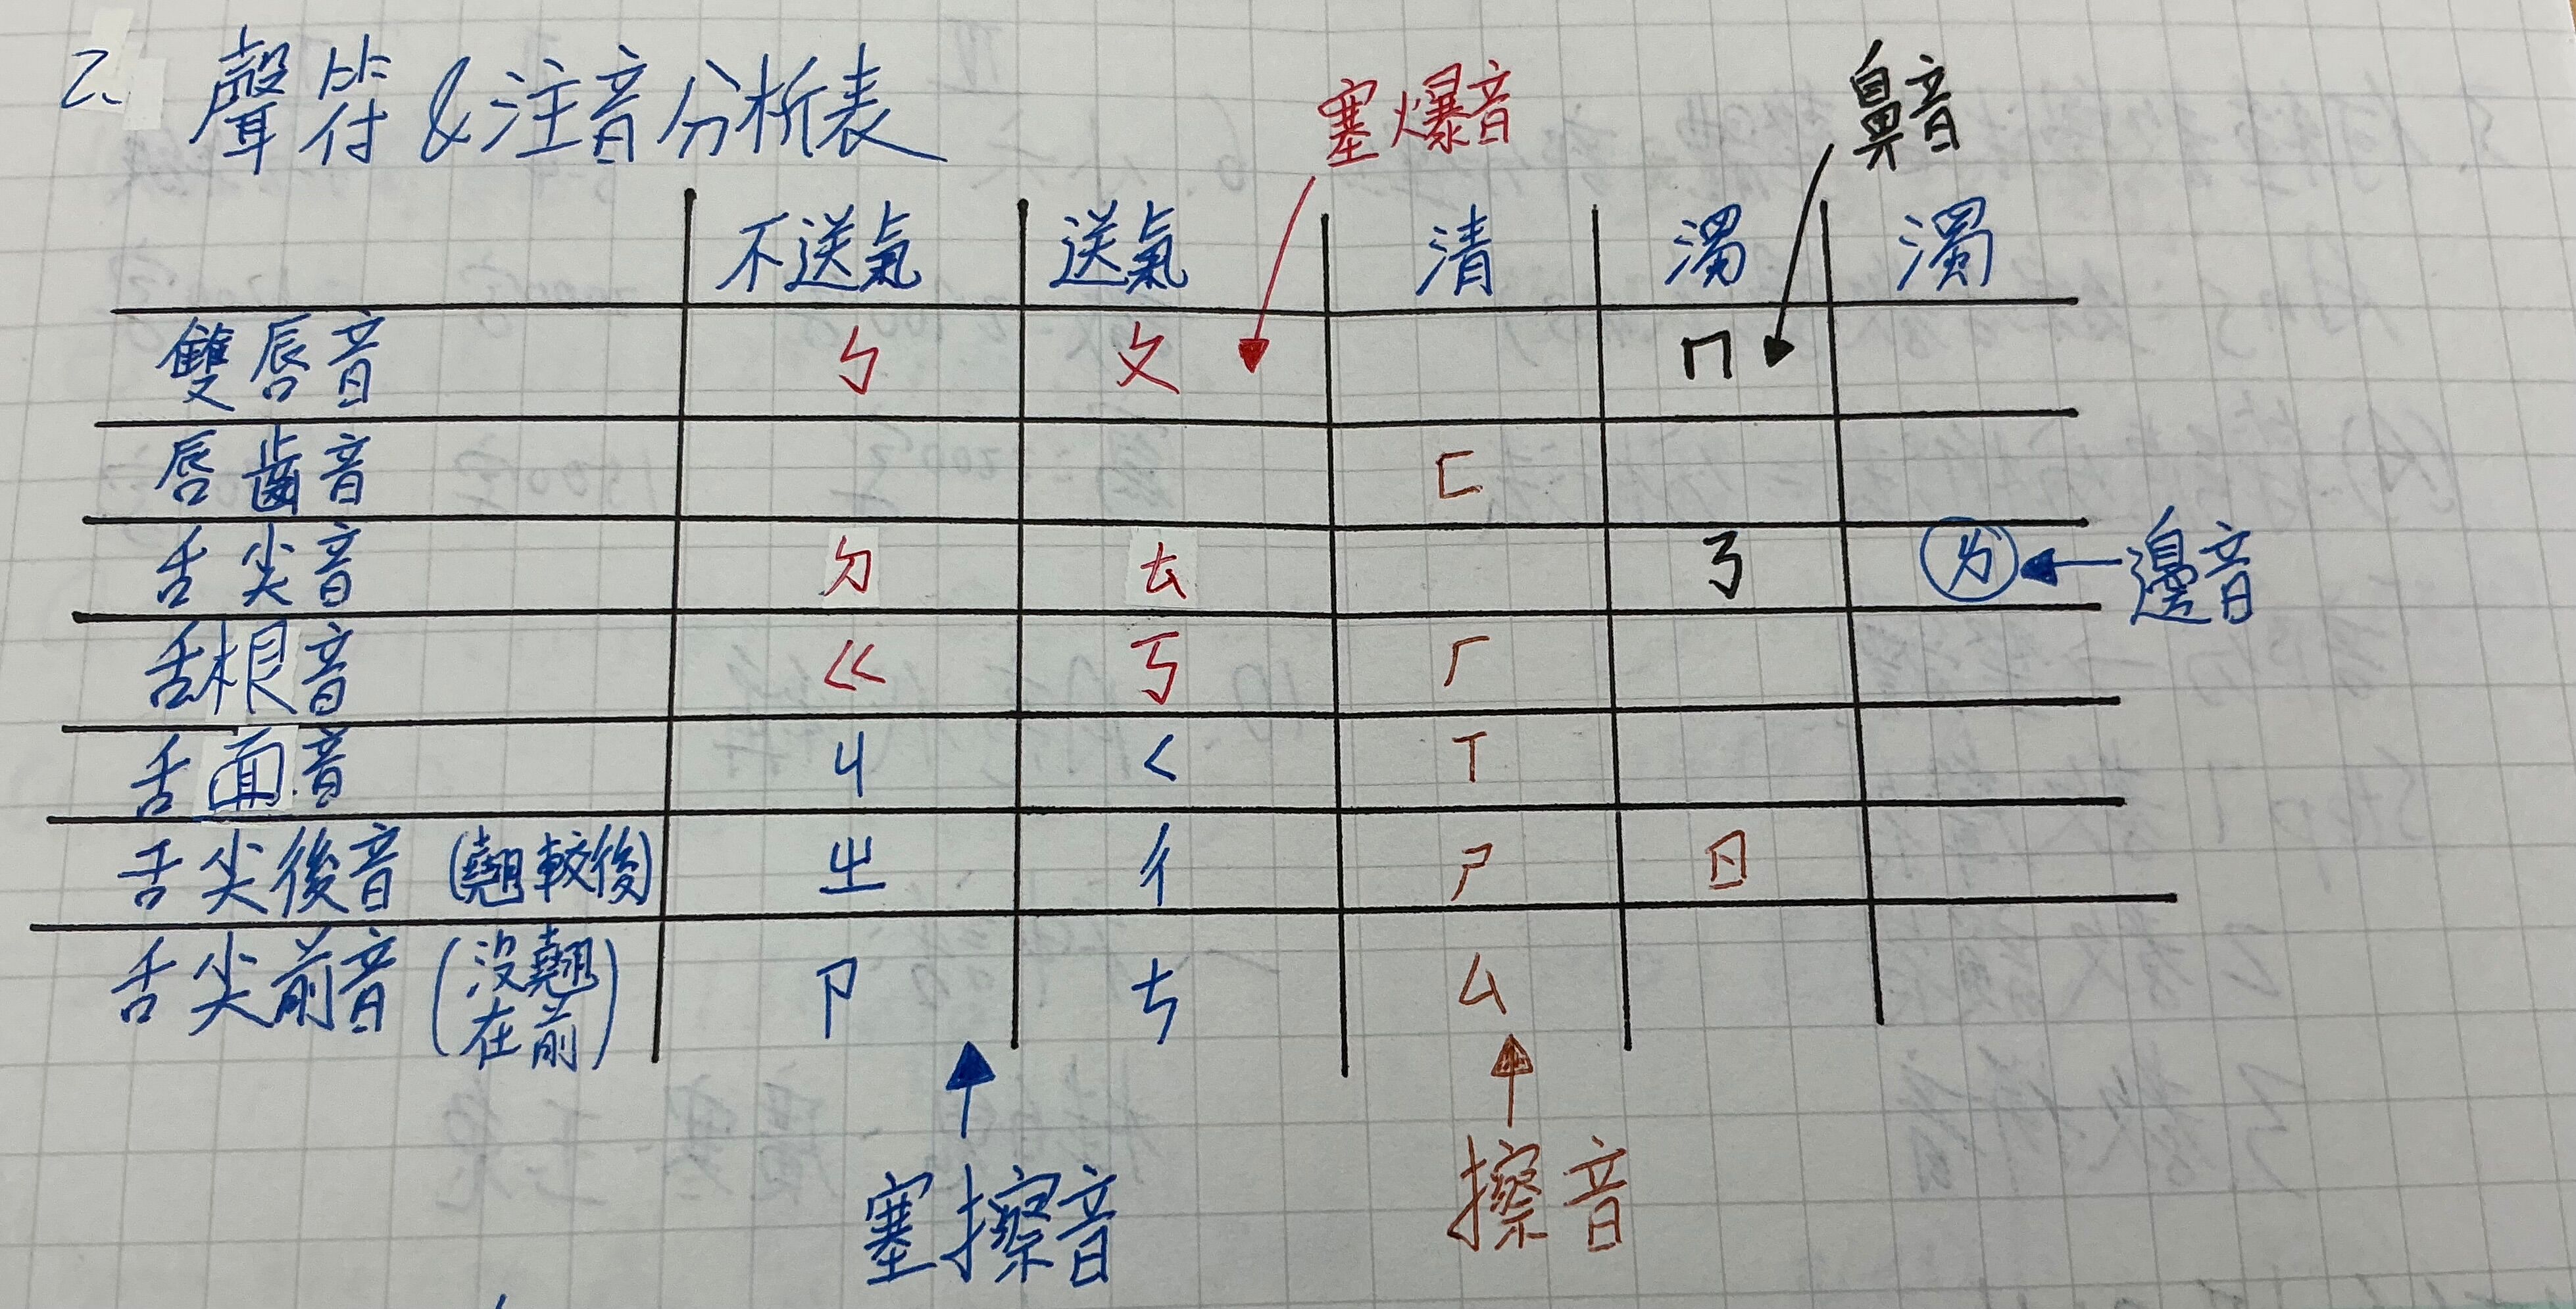 2、聲符&注音分析表
塞爆音
鼻音
不送氣 送氣 清 濁 濁
雙唇音 ㄅ ㄆ ㄇ
唇齒音 ㄈ
舌尖音 ㄉ ㄊ ㄋ ㄌ 邊音
舌根音 ㄍ ㄎ ㄏ
舌面音 ㄐ ㄑ ㄒ
舌尖後音 (翹較後) ㄓ ㄔ ㄕ ㄖ
舌尖前音 (沒翹 ㄗ ㄘ ㄙ
在前)
塞擦音 擦音